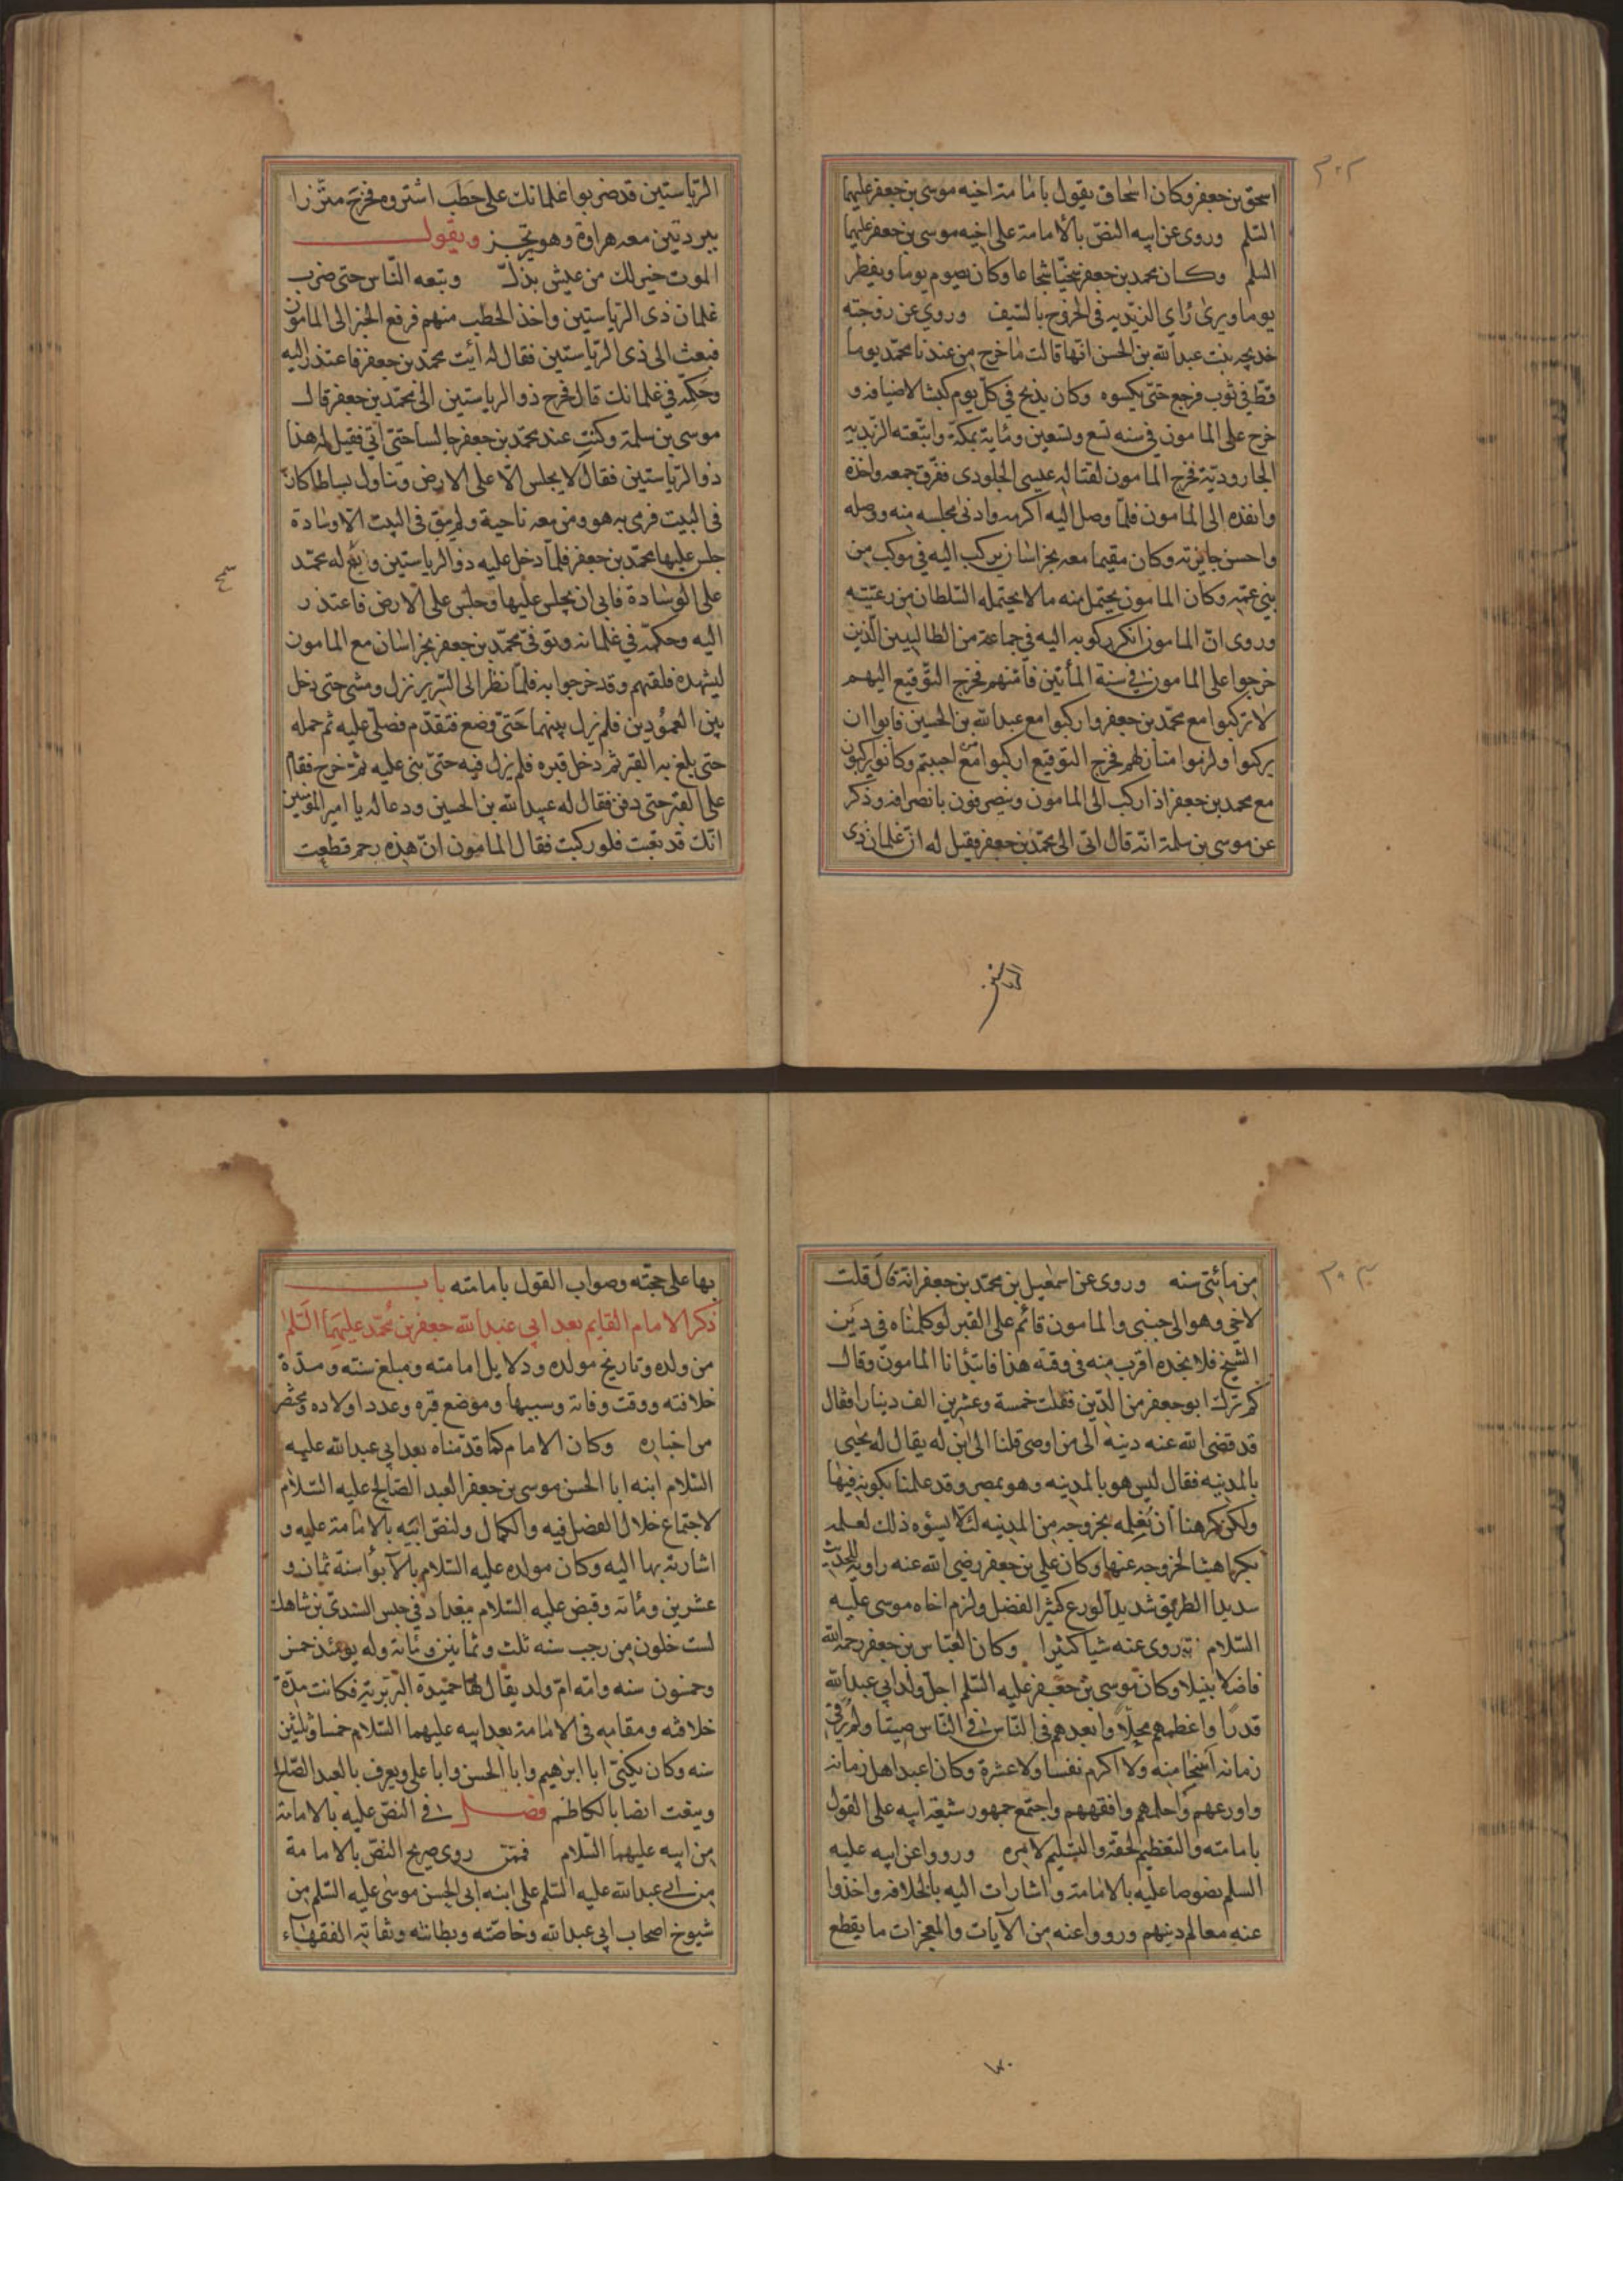 ٣٠٢
اسحق بن جعفر وكان اسحاق يقول بامامة اخيه موسى بن جعفر عليهما
السّلم وروى عن ابيه النصّ بالأمامة على اخيه موسى بن جعفر عليهما
السلم وكان محمد بن جعفر سخيّا شجاعا وكان يصوم يوما ويفطر
يوما ويرى رأي الزيديه في الخروج بالسّيف وروي عن زوجته
خديجه بنت عبد الله بن الحسن انّها قالت ما خرج من عندنا محمّد يوما
قطّ في ثوب فرجع حتى يكسوه وكان يذبح في كلّ يوم كبشا لاضيافه و
خرج على المامون في سنه تسع وتسعين ومائة بمكّة واتبّعته الزيديه
الجاروديّة فخرج المامون لقتاله عيسى الجلودى ففرّق جمعه واخذه
وانفذه الى المامون فلمّا وصل اليه اكرمه وادنى مجلسه منه ووصله
واحسن جايزته وكان مقيما معه بخراسان يركب اليه في موكب من
بني عمّه وكان المامون يحتمل منه ما لا يحتمله السّلطان من رعيّته
وروى انّ المامون انكر ركوبه اليه في جماعة من الطالبيين الّذين
خرجوا على المامون في سنة المأتين فآمنهم فخرج التّوقيع اليهم
لا تركبوا مع محمّد بن جعفر واركبوا مع عبد الله بن الحسين فابوا ان
يركبوا ولزموا منازلهم فخرج التوقيع اركبوا مع من احببتم وكانوا يركبون
مع محمد بن جعفر اذا ركب الى المامون وينصرفون بانصرافه وذكر
عن موسى بن سلمة انّه قال اتى الى محمّد بن جعفر فقيل له انّ غلمان ذي
الرّياستين
الرّياستين قد ضربوا غلمانك على حَطَب اشتروه فخرج متّزرا
ببردتين معه هراوة وهو يرتجز ويقول
الموت خير لك من عيش بذلّ وتبعه النّاس حتى ضرب
غلمان ذى الرّياستين واخذ الحطب منهم فرفع الخبر الى المامون
فبعث الى ذى الرّياستين فقال له أيت محمّد بن جعفر فاعتذر اليه
وحَكّمه في غلمانك قال فخرج ذو الرياستين الى محمّد بن جعفر قال
موسى بن سلمة وكنت عند محمّد بن جعفر جالسا حتى أتي فقيل له هذا
ذو الرّياستين فقال لا يجلس الّا على الارض وتناول بساطا كان
في البيت فرمى به هو ومن معه ناحية ولم يبق في البيت الّا وسادة
جلس عليها محمّد بن جعفر فلمّا دخل عليه ذو الرياستين وسّع له محمّد
على الوسادة فابى ان يجلس عليها وجلس على الارض فاعتذر
اليه وحكمّه في غلمانه وتوفّى محمّد بن جعفر بخراسان مع المامون
ليشهده فلقيهم وقد خرجوا به فلمّا نظر الى السّرير نزل ومشى حتى دخل
بين العمُودين فلم يزل بينهما حَتىّ وضع فتقدّم فصلّى عليه ثم حمله
حتى بلغ به القبر ثم دخل قبره فلم يزل فيه حتىّ بنى عليه ثمّ خرج فقام
على القبر حتى دفن فقال له عبيد الله بن الحسين ودعا له يا امير المؤمنين
انّك قد تعبت فلو ركبت فقال المامون انّ هذه رحم قطعت
٣٠٣
من مأئتي سنه وروى عن اسمعيل بن محمّد بن جعفر انّه قال قلت
لاخي وهو الى جنبي والمامون قائم على القبر لو كلمناه في دَين
الشّيخ فلا نجده اقرب منه في وقته هذا فابتدأنا المامون وقال
كم ترك ابو جعفر من الدّين فقلت خمسة وعشرين الف دينار فقال
قد قضى الله عنه دينه الى من اوصى قلنا الى ابن له يقال له يحيى
بالمدينه فقال ليس هو بالمدينه وهو بمصر وقد علمنا بكونه فيها
ولكن كرهنا أن نُعلمه بخروجه من المدينه لئلّا يسؤه ذلك لعلمه
بكراهيتنا لخروجه عنها وكان علي بن جعفر رضى الله عنه راوية للحديث
سديد الطريق شديد الورع كثير الفضل ولزم اخاه موسى عليه
السّلام وروى عنه شيا كثيرا وكان العبّاس بن جعفر رحمه الله
فاضلا نبيلا وكان موسى بن جعفر عليه السّلم اجل ولد ابي عبد الله
قدرا واعظمهم محلّا وابعدهم في النّاس صيتا ولم يُر في
زمانه اسخا منه ولا اكرم نفسا ولا عشرة وكان اعبد اهل زمانه
واورعهم واجلهم وافقههم واجتمع جمهور شيعة ابيه على القول
بامامته والتعظيم لحقّه والتسليم لامره ورووا عن ابيه عليه
السلم نصوصا عليه بالامامة واشارات اليه بالخلافه واخذوا
عنه معالم دينهم ورووا عنه من الآيات والمعجزات ما يقطع
بها على حجّته وصواب القول بامامته باب
ذكر الامام القايم بعد ابي عبد الله جعفر بن مُحمّد عليهما السّلم
من ولده وتاريخ مولده ودلايل امامته ومبلغ سنّه ومدّة
خلافته ووقت وفاته وسببها وموضع قبره وعدد اولاده ومختصر
من اخباره وكان الامام كما قدّمناه بعد ابي عبد الله عليه
السّلام ابنه ابا الحسن موسى بن جعفر العبد الصّالح عليه السّلام
لاجتماع خلال الفضل فيه والكمال ولنصّ ابيه بالامامة عليه و
اشارته بها اليه وكان مولده عليه السّلام بالأبواء سنة ثمان و
عشرين ومائة وقبض عليه السّلام ببغداد في حبس السّندىّ بن شاهك
لست خلون من رجب سنه ثلث وثمانين ومائة وله يومئذ خمس
وخمسون سنه وامّه امّ ولد يقال لها حميدة البَربَريّة فكانت مدّة
خلافته ومقامه في الامامة بعد ابيه عليهما السّلام خمسا وثلثين
سنه وكان يكنىّ ابا ابرهيم وابا الحسن وابا على ويعرف بالعبد الصّالح
وينعت ايضا بالكاظم فصل في النصّ عليه بالامامة
من ابيه عليهما السّلام فممّن روى صريح النصّ بالامامة
من ابي عبد الله عليه السّلم على ابنه ابي الحسن موسى عليه السّلم من
شيوخ اصحاب ابي عبد الله وخاصّته وبطانته وثقاته الفقهاء